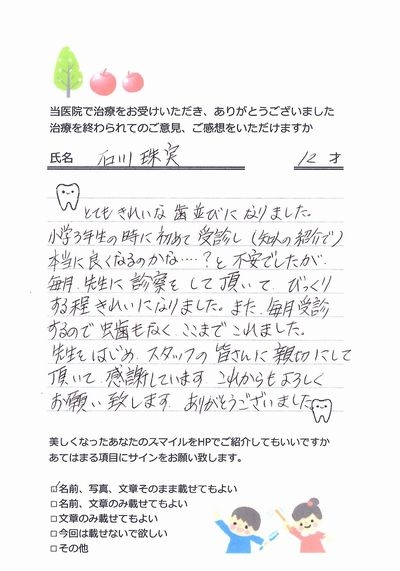 当医院で治療をお受けいただき、ありがとうございました
治療を終わられてのご意見、ご感想をいただけますか
氏名 石川 珠実 12 才
とてもきれいな歯並びになりました。
小学3年生の時に初めて受診し(知人の紹介で)
本当に良くなるのかな…?と不安でしたが、
毎月、先生に診察をして頂いて、びっくり
する程きれいになりました。また、毎月受診
するので虫歯もなく、ここまでこれました。
先生をはじめ、スタッフの皆さんに親切にして
頂いて、感謝しています。これからもよろしく
お願い致します。ありがとうございました。
美しくなったあなたのスマイルをHPでご紹介してもいいですか
あてはまる項目にサインをお願い致します。
☑名前、写真、文章そのまま載せてもよい
□名前、文章のみ載せてもよい
□文章のみ載せてもよい
□今回は載せないで欲しい
□その他